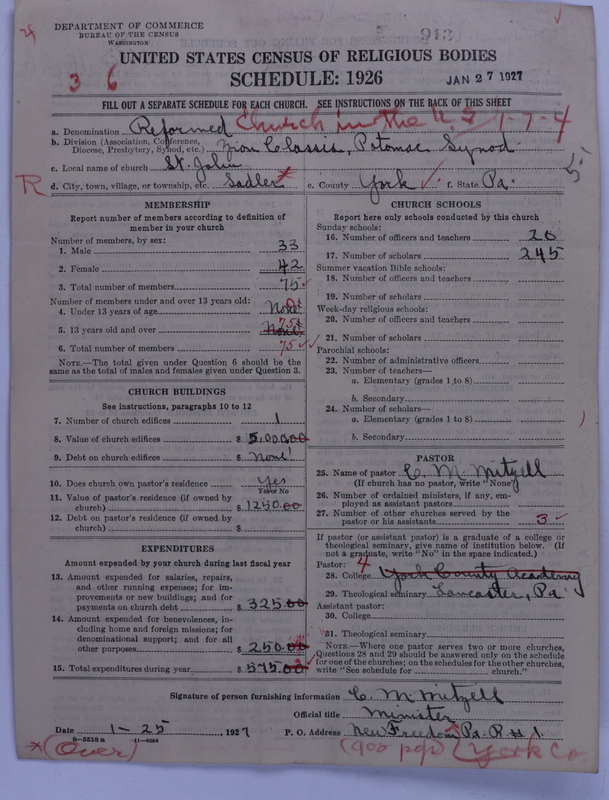 DEPARTMENT OF COMMERCE
BUREAU OF THE CENSUS
WASHINGTON
913
UNITED STATES CENSUS OF RELIGIOUS BODIES
3 6
SCHEDULE: 1926
JAN 27 1927
FILL OUT A SEPARATE SCHEDULE FOR EACH CHURCH. SEE INSTRUCTIONS ON THE BACK OF THIS SHEET
a. Denomination Reformed Church in the U.S. 1-7-4
b. Division (Association, Conference, Diocese, Presbytery, Synod, etc.) Zion Classis, Potomac Synod
c. Local name of church St. John
R d. City, town, village, or township, etc. Sadler* e. County York f. State Pa.
MEMBERSHIP
Report number of members according to definition of
member in your church
Number of members, by sex:
1. Male 33
2. Female 42
3. Total number of members 75
Number of members under and over 13 years old:
4. Under 13 years of age None
5. 13 years old and over None 75
6. Total number of members 75
NOTE.—The total given under Question 6 should be
same as the total of males and females given under Question 3.
CHURCH BUILDINGS
See instructions, paragraphs 10 to 12
7. Number of church edifices 1
8. Value of church edifices $ 5,000.00
9. Debt on church edifices $ None
10. Does church own pastor's residence Yes
Yes or No
11. Value of pastor's residence (if owned by
church) $ 1250.00
12. Debt on pastor's residence (if owned by
church) $
EXPENDITURES
Amount expended by your church during last fiscal year
13. Amount expended for salaries, repairs,
and other running expenses; for im-
provements or new buildings; and for
payments on church debt $ 325.00
14. Amount expended for benevolences, in-
cluding home and foreign missions; for
denominational support; and for all
other purposes $ 250.00
15. Total expenditures during year $ 575.00
CHURCH SCHOOLS
Report here only schools conducted by this church
Sunday schools:
16. Number of officers and teachers 20
17. Number of scholars 245
Summer vacation Bible schools:
18. Number of officers and teachers
19. Number of scholars
Week-day religious schools:
20. Number of officers and teachers
21. Number of scholars
Parochial schools:
22. Number of administrative officers
23. Number of teachers—
a. Elementary (grades 1 to 8)
b. Secondary
24. Number of scholars—
a. Elementary (grades 1 to 8)
b. Secondary
PASTOR
25. Name of pastor C. M. Mitzell
(If church has no pastor, write "None")
26. Number of ordained ministers, if any, em-
ployed as assistant pastors
27. Number of other churches served by the
pastor or his assistants 3
If pastor (or assistant pastor) is a graduate of a college or
theological seminary, give name of institution below. (If
not a graduate, write "No" in the space indicated.)
Pastor: 4
28. College York County Academy
29. Theological seminary Lancaster, Pa.
Assistant pastor:
30. College
31. Theological seminary
NOTE.—Where one pastor serves two or more churches,
Questions 28 and 29 should be answered only on the schedule
for one of the churches; on the schedules for the other churches,
write "See schedule for church."
Signature of person furnishing information C. M. Mitzell
Official title Minister
Date 1-25 1927 P. O. Address New Freedom Pa. R #1.
8-5518a 11-9024
*(Over) (900 pop) York Co.